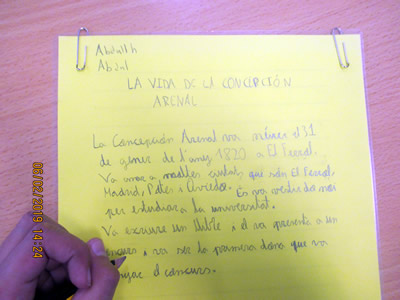 Abdallh
Abdal
LA VIDA DE LA CONCEPCIÓN
ARENAL
La Concepción Arenal va néixer el 31
de gener de l'any 1820 a El Ferrol.
Va anar a moltes ciutats que són El Ferrol,
Madrid, Potes i Oviedo. Es va vestir d'
per estudiar a la universitat.
Va escriure un llibre i el va presentar a un
concurs i va ser la primera dona que va
el concurs.
06/02/2019 14:24